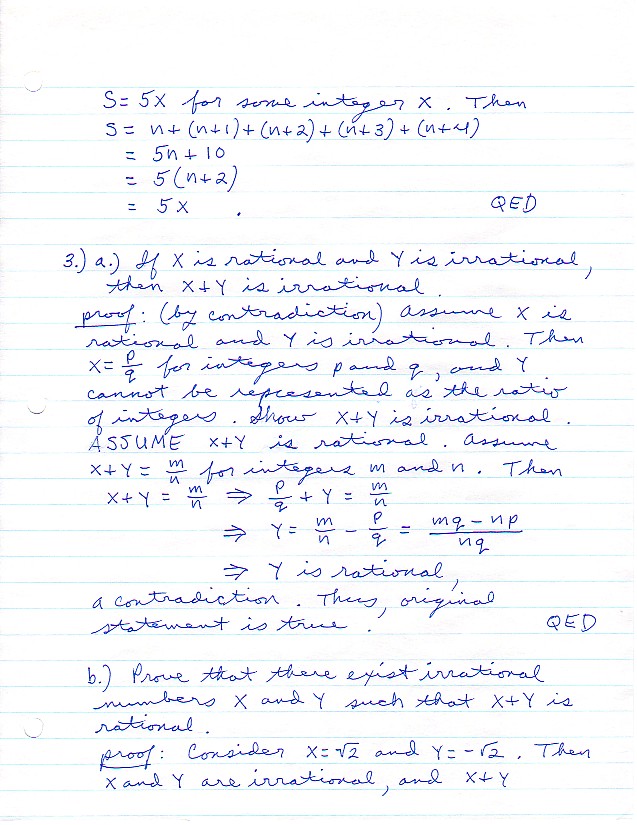 S = 5X for some integer X. Then
S = n + (n+1) + (n+2) + (n+3) + (n+4)
= 5n + 10
= 5(n+2)
= 5X. QED
3.) a.) If X is rational and Y is irrational,
then X+Y is irrational.
proof: (by contradiction) Assume X is
rational and Y is irrational. Then
X = p/q for integers p and q, and Y
cannot be represented as the ratio
of integers. Show X+Y is irrational.
ASSUME X+Y is rational. Assume
X+Y = m/n for integers m and n. Then
X+Y = m/n ⇒ p/q + Y = m/n
⇒ Y = m/n - p/q = (mq - np)/(nq)
⇒ Y is rational,
a contradiction. Thus, original
statement is true. QED
b.) Prove that there exist irrational
numbers X and Y such that X+Y is
rational.
proof: Consider X = √2 and Y = -√2. Then
X and Y are irrational, and X+Y